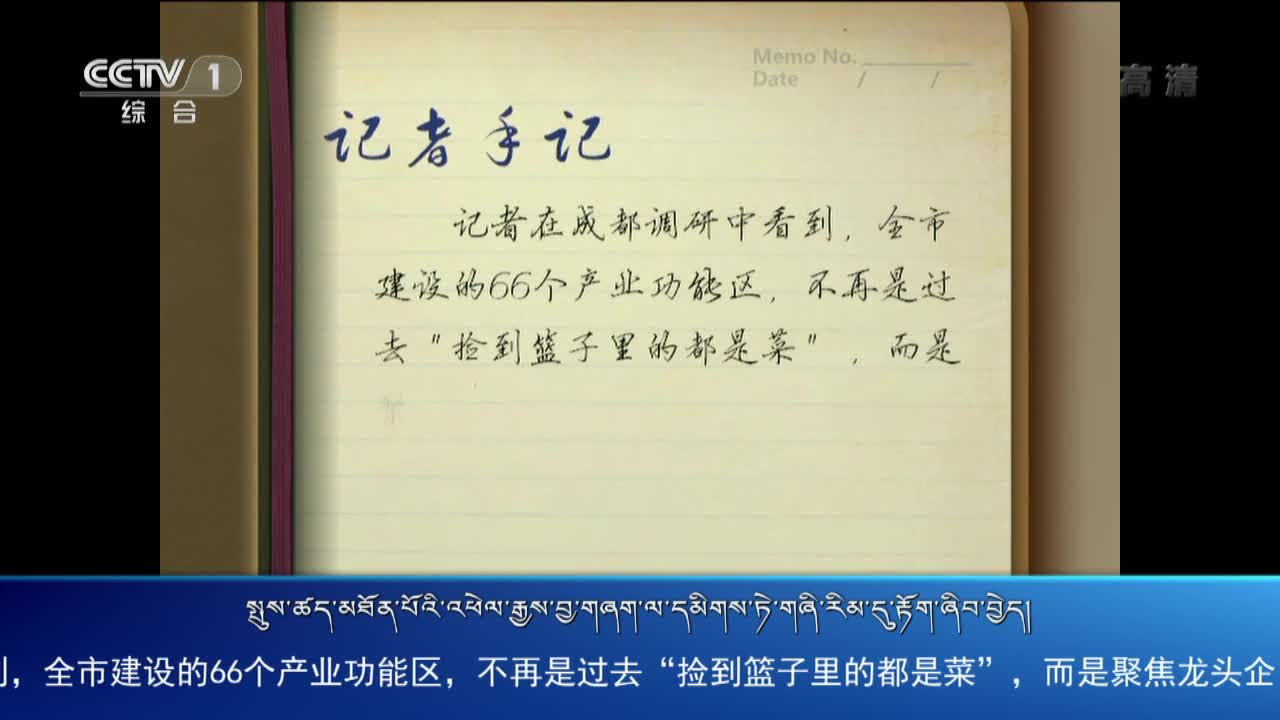 CCTV 1
综合
高清
Memo No.
Date / /
记者手记
记者在成都调研中看到，全市
建设的66个产业功能区，不再是过
去"捡到篮子里的都是菜"，而是
སྤུས་ཚད་མཐོན་པོའི་འཕེལ་རྒྱས་བྱ་གཞག་ལ་དམིགས་ཏེ་གཞི་རིམ་དུ་རྟོག་ཞིབ་བྱེད།
，全市建设的66个产业功能区，不再是过去“捡到篮子里的都是菜”，而是聚焦龙头企